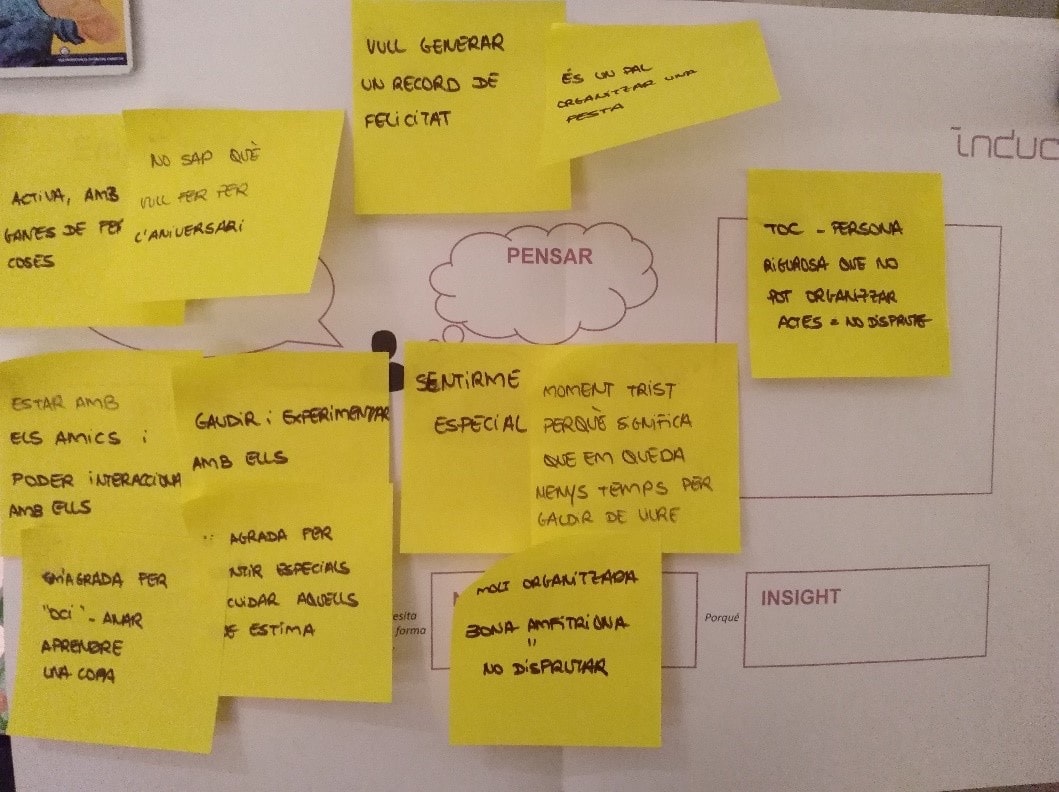 VULL GENERAR
UN RECORD DE
FELICITAT
ÉS UN PAL
ORGANITZAR UNA
FESTA
induc
ACTIVA, AMB
GANES DE FER
COSES
NO SAP QUÈ
VULL FER PER
L'ANIVERSARI
PENSAR
TOC - PERSONA
RIGUROSA QUE NO
POT ORGANITZAR
ACTES = NO DISFRUTE
ESTAR AMB
ELS AMICS i
PODER INTERACCIONA
AMB ELLS
GAUDIR i EXPERIMENTAR
AMB ELLS
SENTIRME
ESPECIAL
MOMENT TRIST
PERQUÈ SIGNIFICA
QUE EM QUEDA
MENYS TEMPS PER
GAUDIR DE VIURE
EM'AGRADA FER
"OCI" - ANAR
APRENDRE
UNA COPA
AGRADA FER
NTIR ESPECIALS
CUIDAR AQUELLS
E ESTIMA
esita
forma
MOLT ORGANITZADA
BONA AMFITRIONA
"
NO DISFRUTAR
Porqué
INSIGHT